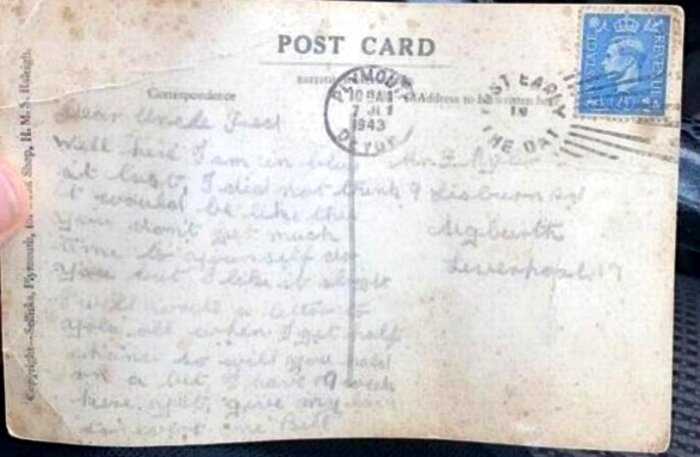 POST CARD
Correspondence
Address to be written here
PLYMOUTH
10 AM
7
1943
DEVON
POST EARLY
IN
THE DAY
POSTAGE
REVENUE
Dear Uncle Fred
Well here I am in blue
at last, I did not think
it would be like this
you don't get much
time to yourself do
you but I like it alright
I will write a letter to
you all when I get half
chance so will you
me a bit I have 9 week
here yet, give my love
to every one Bill
Mr F
9 Lisburn Rd
Aigburth
Liverpool. 17
Copyright—Sellicks, Plymouth, Shop, H.M.S. Raleigh.